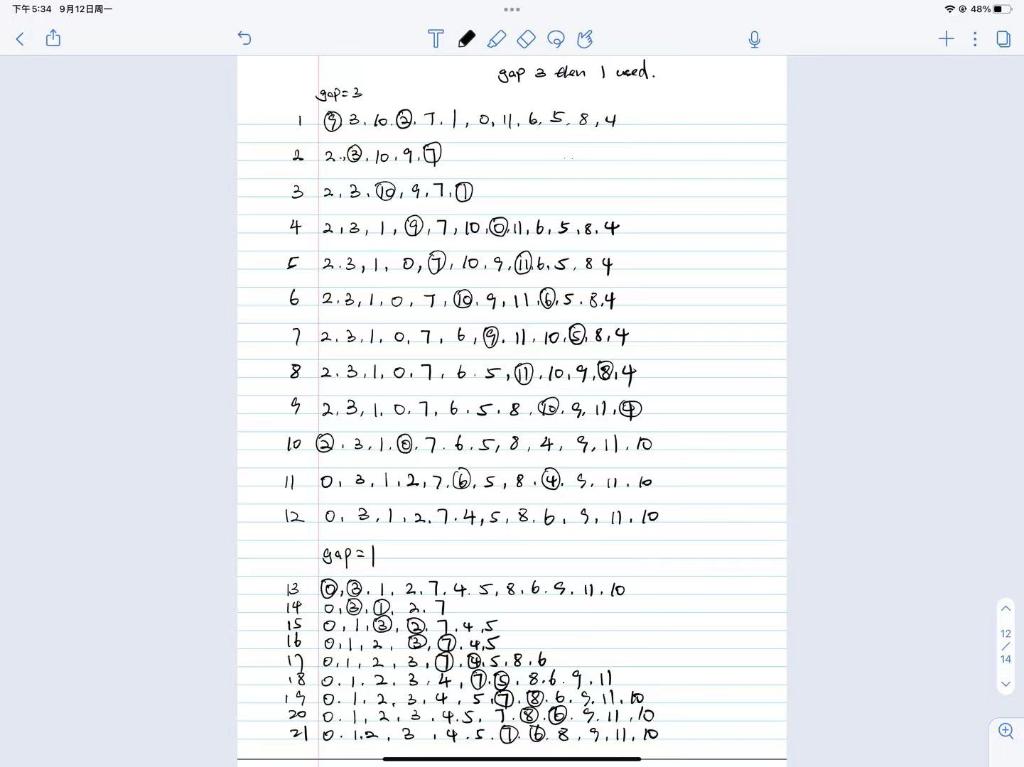 下午5:34 9月12日周一
48%
gap 3 then 1 used.
gap=3
1 9 3. 10. 2. 7. 1, 0, 11, 6. 5. 8, 4
2 2., 3, 10, 9. 7
3 2, 3. 10, 9, 7. 1
4 2, 3, 1, 9, 7, 10, 0, 11, 6, 5, 8. 4
5 2. 3, 1, 0, 7, 10, 9, 11, 6, 5, 8 4
6 2, 3, 1, 0, 7, 10. 9, 11, 6, 5. 8, 4
7 2. 3, 1. 0, 7, 6, 9. 11, 10, 5, 8, 4
8 2. 3, 1, 0, 7, 6. 5, 11. 10, 9, 8, 4
9 2, 3, 1, 0. 7, 6. 5. 8, 10, 9, 11, 4
10 2. 3. 1. 0. 7. 6. 5, 8, 4, 9, 11. 10
11 0, 3, 1, 2, 7. 6, 5, 8. 4, 9, 11. 10
12 0, 3, 1, 2. 7. 4, 5, 8. 6, 9, 11, 10
gap=1
13 0, 3. 1, 2. 7. 4. 5, 8, 6. 9. 11, 10
14 0, 3, 1, 2. 7
15 0, 1, 3, 2. 7. 4, 5
16 0, 1, 2, 3, 7. 4, 5
17 0, 1, 2, 3, 7, 4, 5, 8, 6
18 0. 1. 2. 3, 4, 7. 5, 8. 6. 9, 11
19 0. 1, 2, 3, 4, 5, 7. 8. 6, 9. 11, 10
20 0. 1, 2, 3, 4. 5, 7. 8. 6. 9. 11, 10
21 0. 1. 2, 3, 4. 5. 7. 6. 8, 9, 11, 10
12
/
14